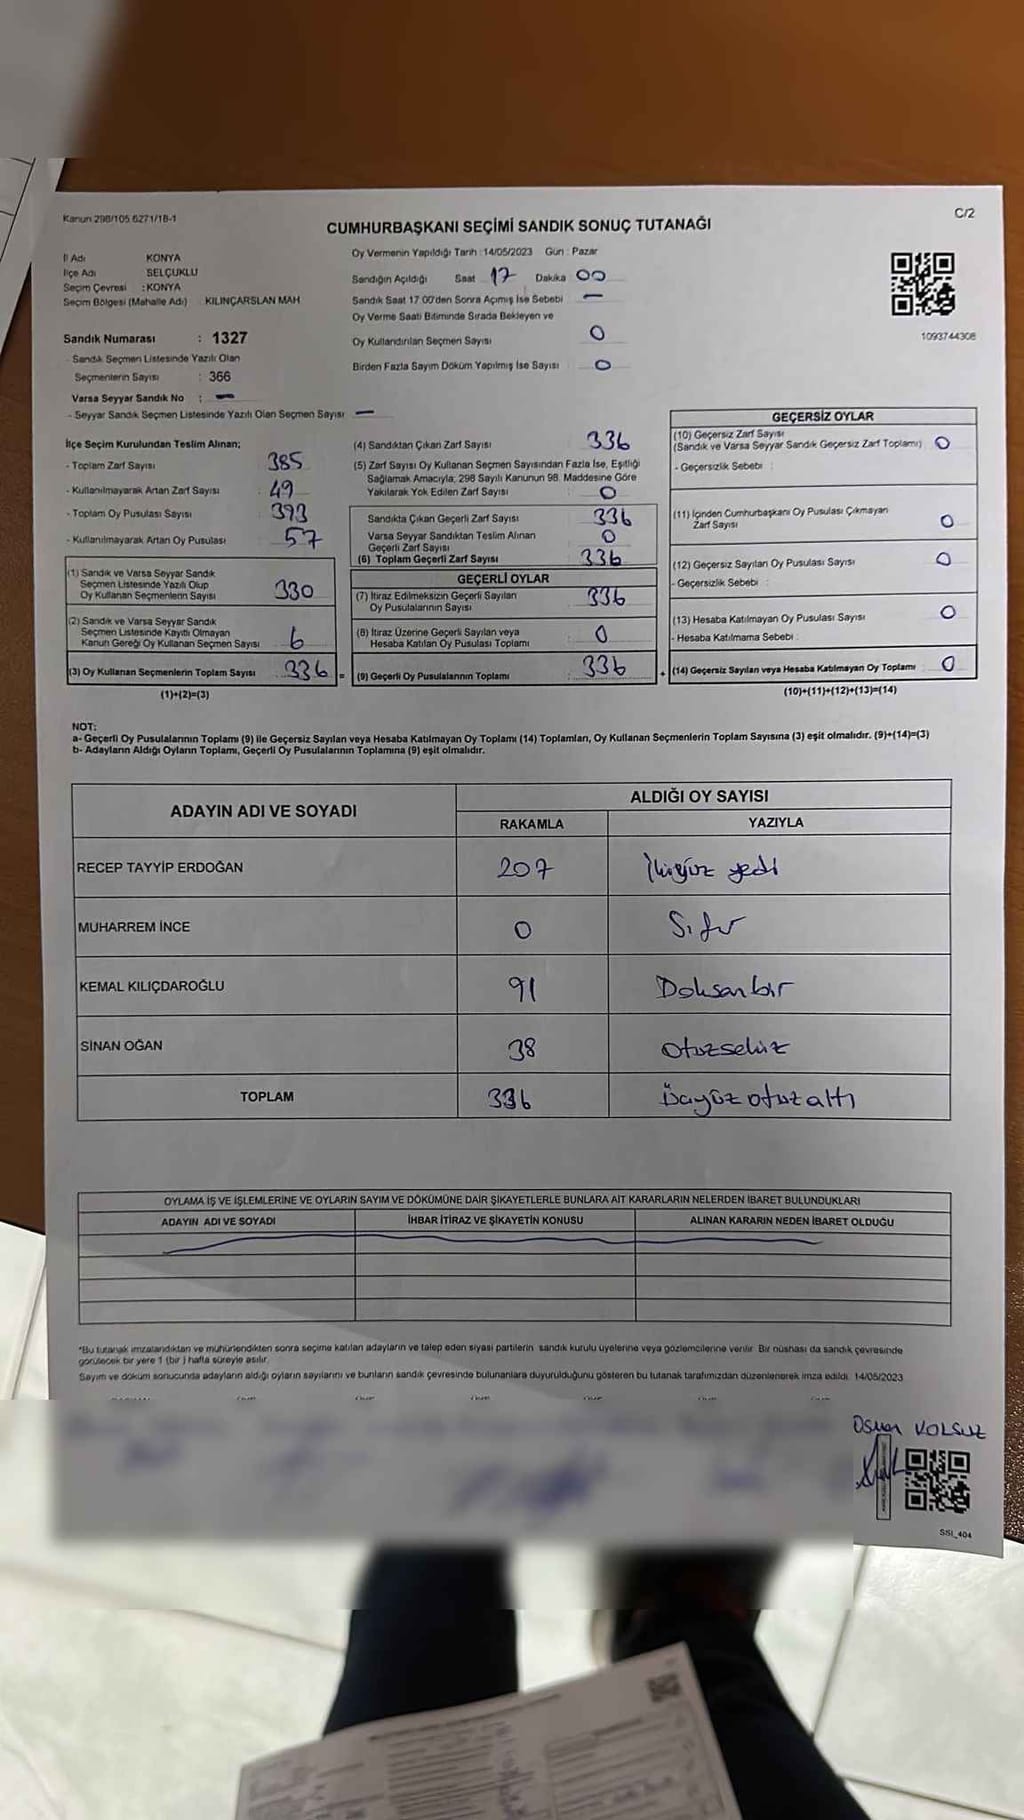 Kanun 298/105 6271/18-1
C/2
CUMHURBAŞKANI SEÇİMİ SANDIK SONUÇ TUTANAĞI
İl Adı KONYA
İlçe Adı SELÇUKLU
Seçim Çevresi : KONYA
Seçim Bölgesi (Mahalle Adı) : KILINÇARSLAN MAH
Sandık Numarası : 1327
- Sandık Seçmen Listesinde Yazılı Olan
Seçmenlerin Sayısı : 366
Varsa Seyyar Sandık No : —
- Seyyar Sandık Seçmen Listesinde Yazılı Olan Seçmen Sayısı —
Oy Vermenin Yapıldığı Tarih : 14/05/2023 Gün : Pazar
Sandığın Açıldığı Saat 17 Dakika 00
Sandık Saat 17.00'den Sonra Açımış İse Sebebi —
Oy Verme Saati Bitiminde Sırada Bekleyen ve
Oy Kullandırılan Seçmen Sayısı 0
Birden Fazla Sayım Döküm Yapılmış İse Sayısı 0
1093744308
İlçe Seçim Kurulundan Teslim Alınan;
- Toplam Zarf Sayısı 385
- Kullanılmayarak Artan Zarf Sayısı : 49
- Toplam Oy Pusulası Sayısı : 393
- Kullanılmayarak Artan Oy Pusulası : 57
(1) Sandık ve Varsa Seyyar Sandık
Seçmen Listesinde Yazılı Olup
Oy Kullanan Seçmenlerin Sayısı 330
(2) Sandık ve Varsa Seyyar Sandık
Seçmen Listesinde Kayıtlı Olmayan
Kanun Gereği Oy Kullanan Seçmen Sayısı 6
(3) Oy Kullanan Seçmenlerin Toplam Sayısı 336 =
(1)+(2)=(3)
(4) Sandıktan Çıkan Zarf Sayısı 336
(5) Zarf Sayısı Oy Kullanan Seçmen Sayısından Fazla İse, Eşitliği
Sağlamak Amacıyla, 298 Sayılı Kanunun 98. Maddesine Göre
Yakılarak Yok Edilen Zarf Sayısı 0
Sandıkta Çıkan Geçerli Zarf Sayısı 336
Varsa Seyyar Sandıktan Teslim Alınan
Geçerli Zarf Sayısı 0
(6) Toplam Geçerli Zarf Sayısı 336
GEÇERLİ OYLAR
(7) İtiraz Edilmeksizin Geçerli Sayılan
Oy Pusulalarının Sayısı 336
(8) İtiraz Üzerine Geçerli Sayılan veya
Hesaba Katılan Oy Pusulası Toplamı 0
(9) Geçerli Oy Pusulalarının Toplamı 336 +
GEÇERSİZ OYLAR
(10) Geçersiz Zarf Sayısı
(Sandık ve Varsa Seyyar Sandık Geçersiz Zarf Toplamı) 0
- Geçersizlik Sebebi :
(11) İçinden Cumhurbaşkanı Oy Pusulası Çıkmayan
Zarf Sayısı 0
(12) Geçersiz Sayılan Oy Pusulası Sayısı 0
- Geçersizlik Sebebi :
(13) Hesaba Katılmayan Oy Pusulası Sayısı 0
- Hesaba Katılmama Sebebi :
(14) Geçersiz Sayılan veya Hesaba Katılmayan Oy Toplamı 0
(10)+(11)+(12)+(13)=(14)
NOT:
a- Geçerli Oy Pusulalarının Toplamı (9) ile Geçersiz Sayılan veya Hesaba Katılmayan Oy Toplamı (14) Toplamları, Oy Kullanan Seçmenlerin Toplam Sayısına (3) eşit olmalıdır. (9)+(14)=(3)
b- Adayların Aldığı Oyların Toplamı, Geçerli Oy Pusulalarının Toplamına (9) eşit olmalıdır.
ADAYIN ADI VE SOYADI ALDIĞI OY SAYISI
RAKAMLA YAZIYLA
RECEP TAYYİP ERDOĞAN 207 İkiyüz yedi
MUHARREM İNCE 0 Sıfır
KEMAL KILIÇDAROĞLU 91 Doksanbir
SİNAN OĞAN 38 Otuzsekiz
TOPLAM 336 Üçyüzotuzaltı
OYLAMA İŞ VE İŞLEMLERİNE VE OYLARIN SAYIM VE DÖKÜMÜNE DAİR ŞİKAYETLERLE BUNLARA AİT KARARLARIN NELERDEN İBARET BULUNDUKLARI
ADAYIN ADI VE SOYADI İHBAR İTİRAZ VE ŞİKAYETİN KONUSU ALINAN KARARIN NEDEN İBARET OLDUĞU
*Bu tutanak imzalandıktan ve mühürlendikten sonra seçime katılan adayların ve talep eden siyasi partilerin sandık kurulu üyelerine veya gözlemcilerine verilir. Bir nüshası da sandık çevresinde
görülecek bir yere 1 (bir ) hafta süreyle asılır.
Sayım ve döküm sonucunda adayların aldığı oyların sayılarını ve bunların sandık çevresinde bulunanlara duyurulduğunu gösteren bu tutanak tarafımızdan düzenlenerek imza edildi. 14/05/2023
Osman YOLSUZ
SSİ_404